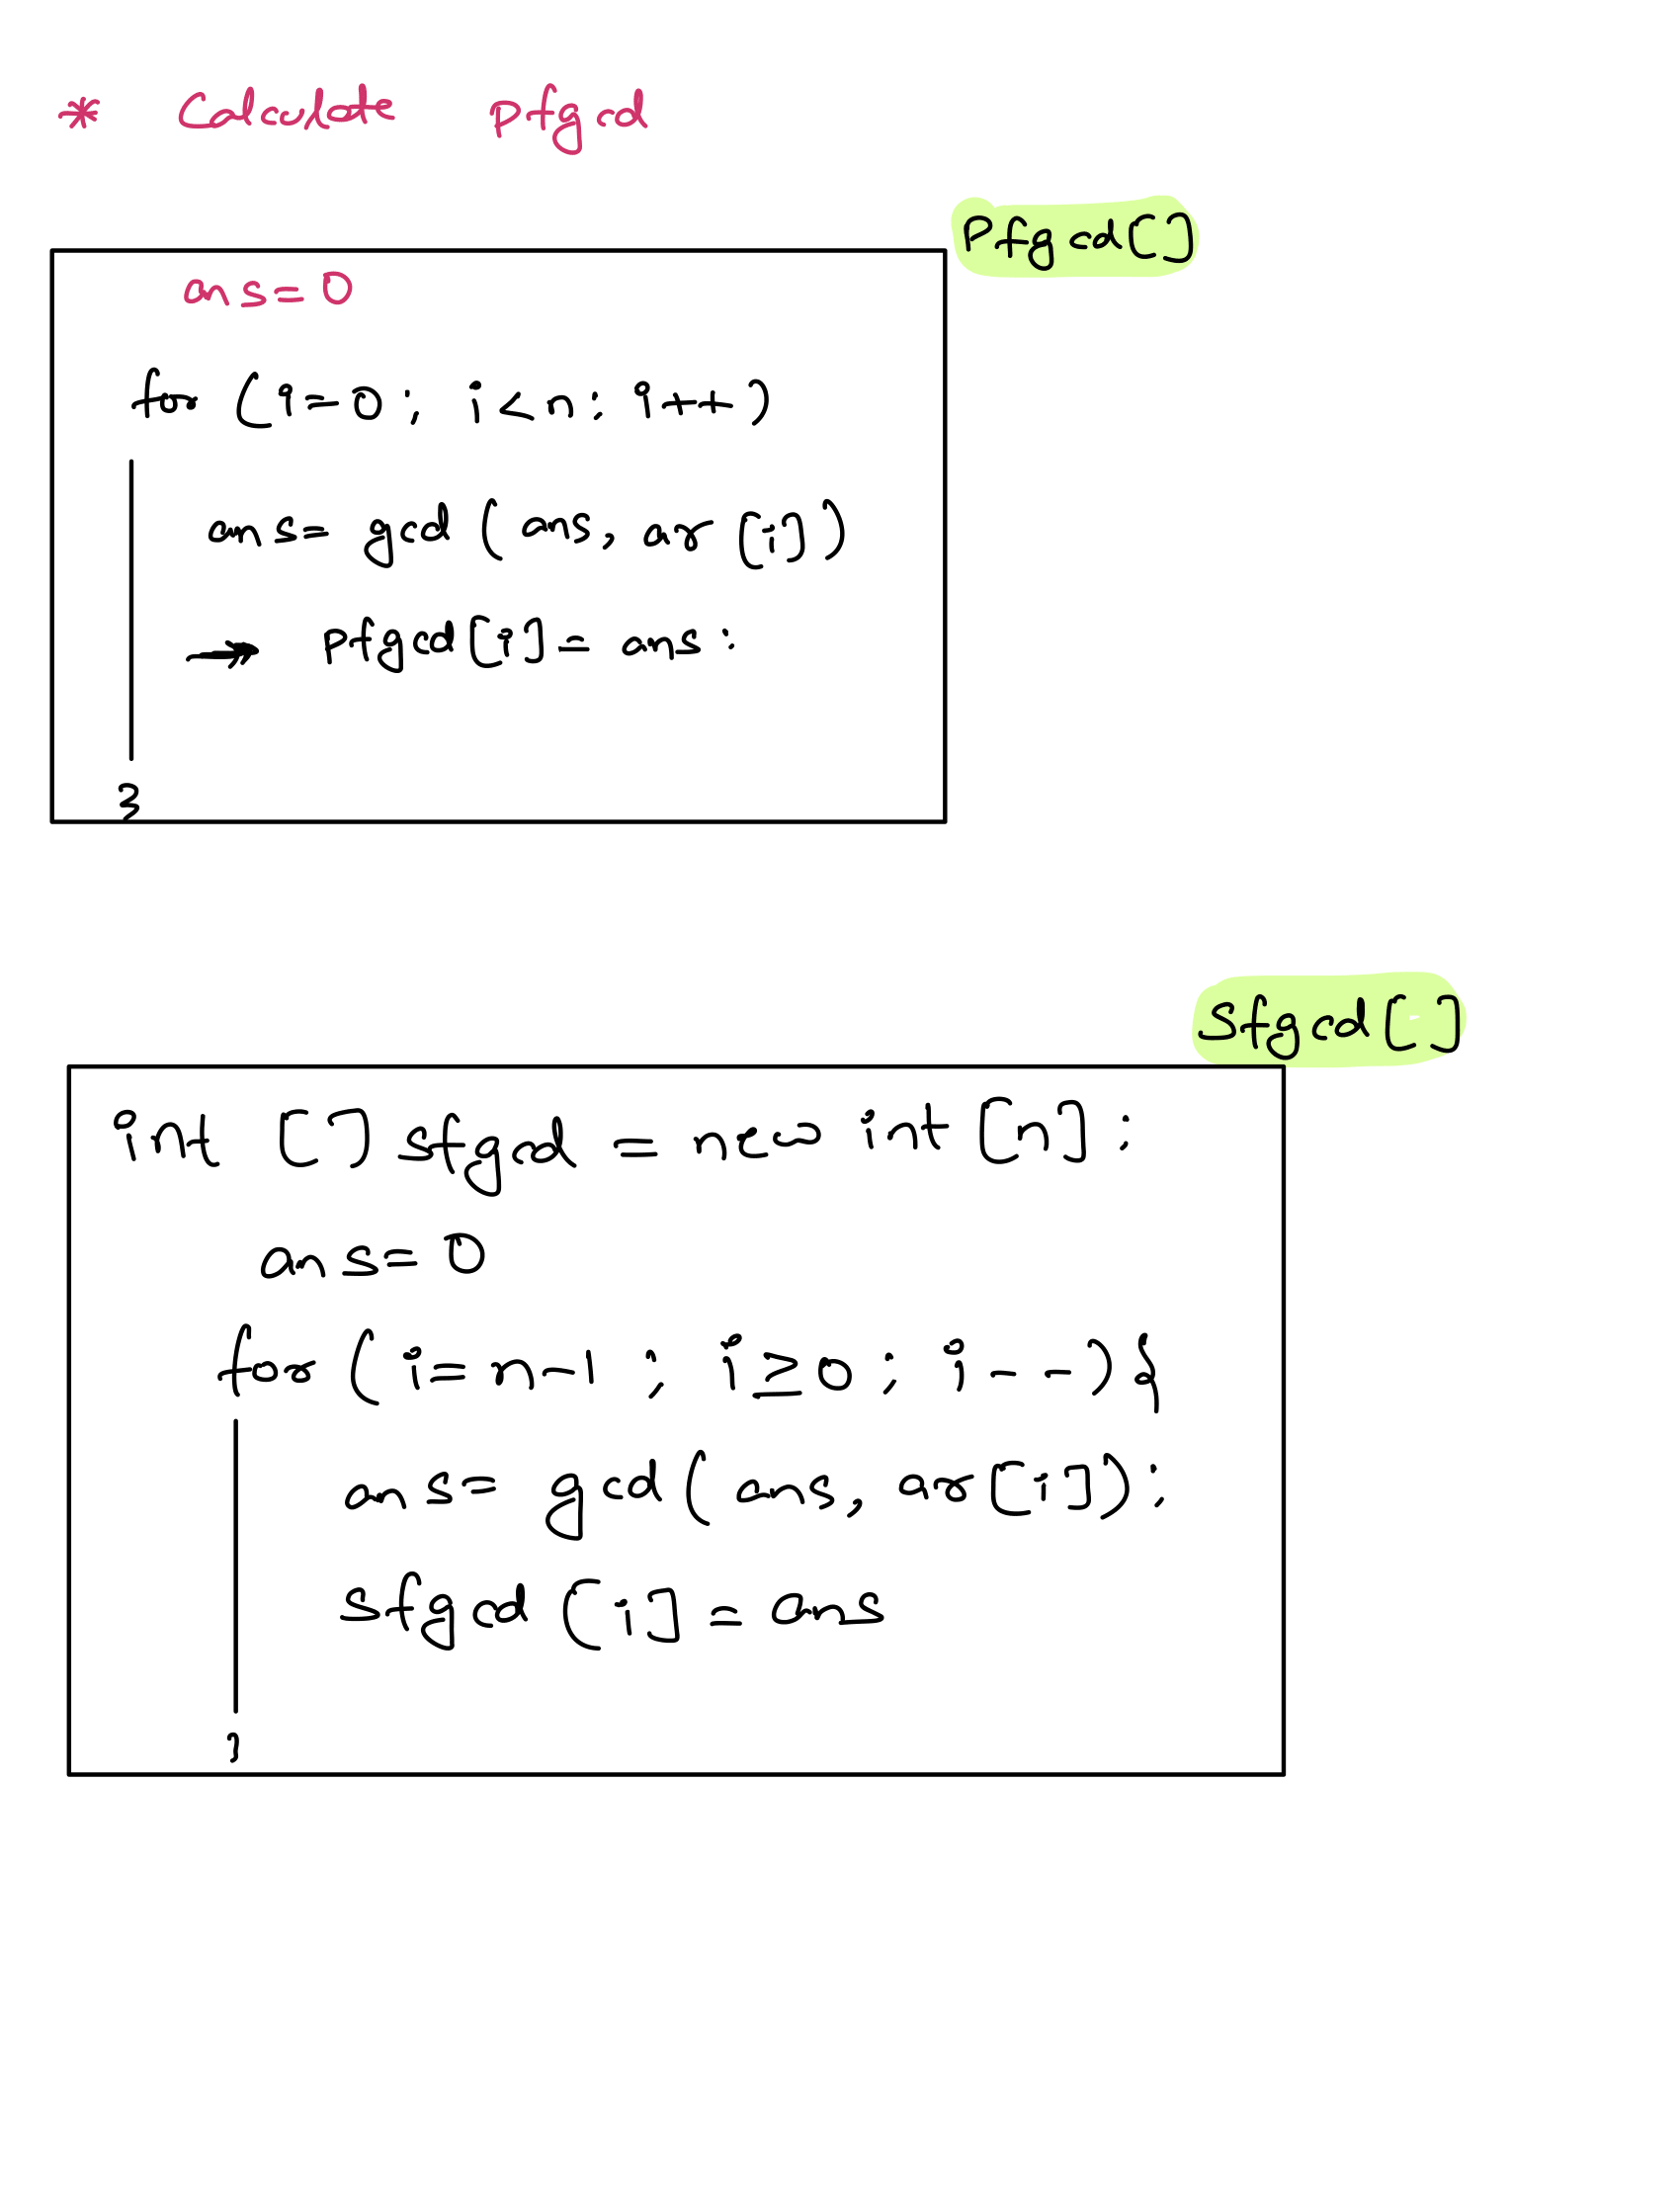 * Calculate Pfgcd
Pfgcd[]
ans=0
for (i=0; i<n; i++)
ans= gcd (ans, ar[i])
→ Pfgcd[i]= ans;
}
Sfgcd[]
int [] sfgcd = new int [n];
ans=0
for (i=n-1 ; i≥0 ; i--){
ans= gcd(ans, ar[i]);
sfgcd [i] = ans
}